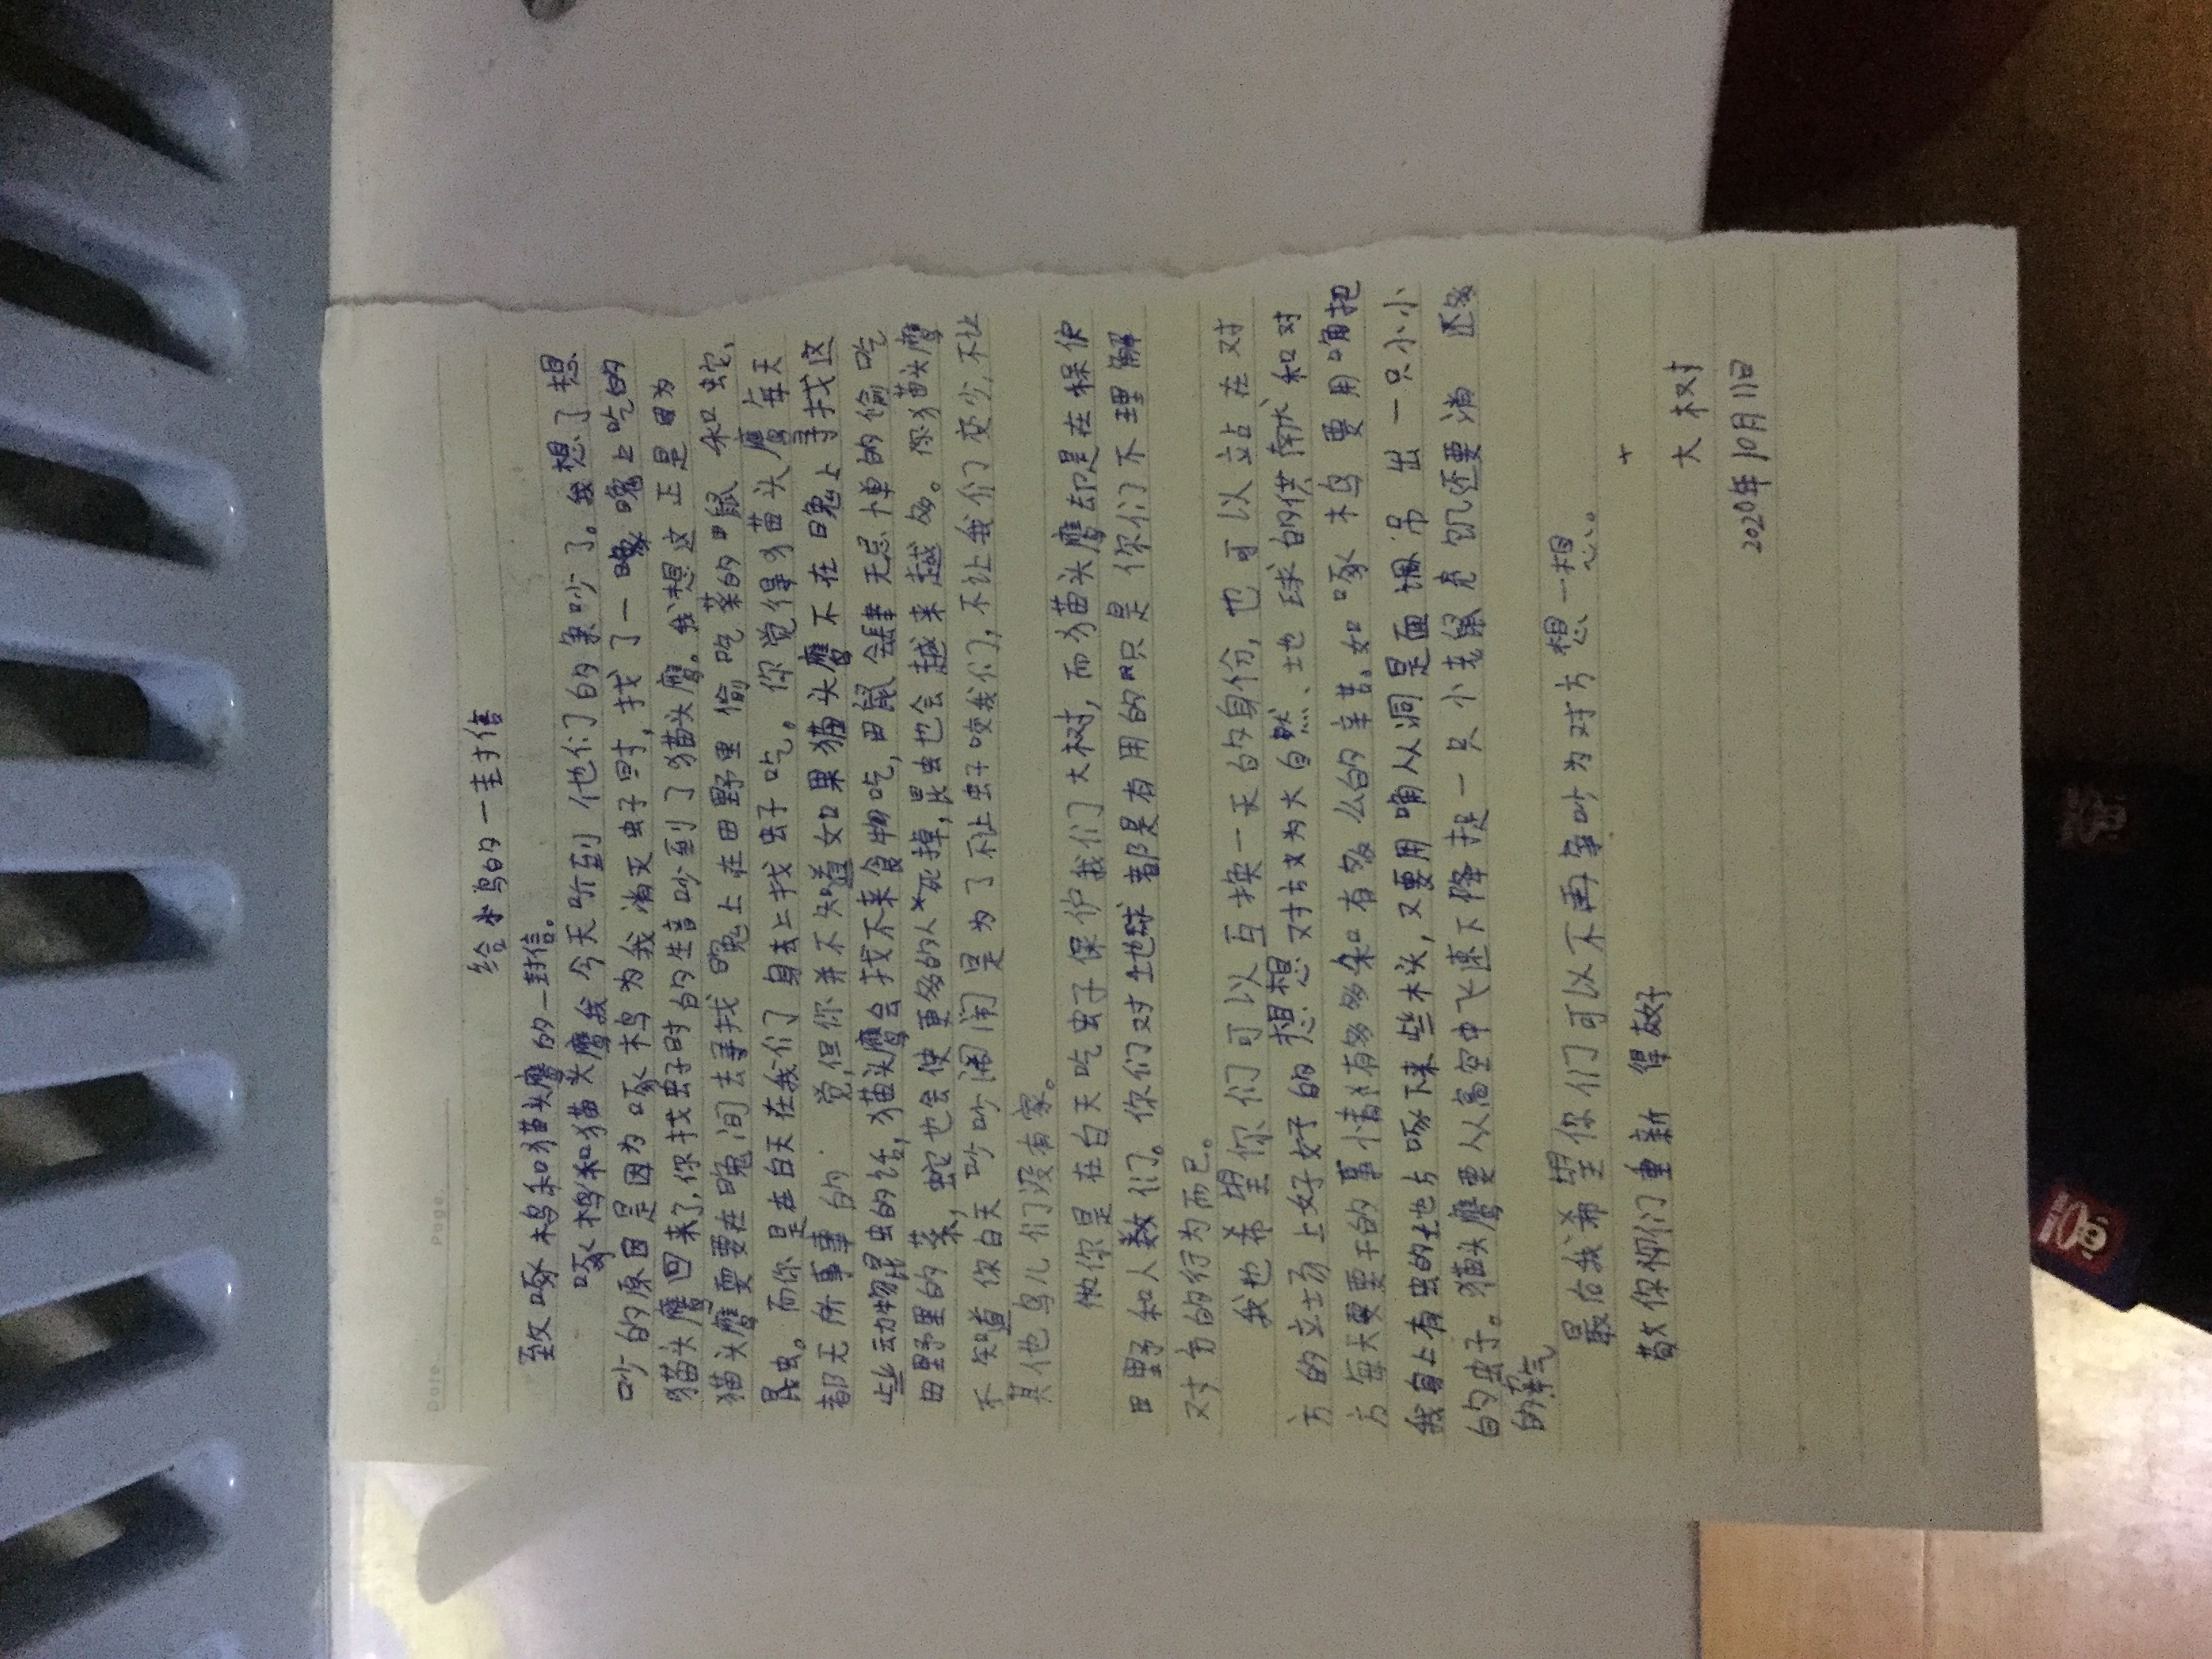 Date. Page.
给小鸟的一封信
致啄木鸟和猫头鹰的一封信。
啄木鸟和猫头鹰我今天听到他们的争吵了。我想了想
吵的原因是因为啄木鸟为我消灭虫子时,找了一晚晚上吃的
猫头鹰回来了,你找虫子时的生音吵到了猫头鹰。我想这正是因为
猫头鹰要在晚间去寻找晚上在田野里偷吃菜的田鼠和蛇,
昆虫。而你是在白天在我们身去上找虫子吃。你觉得猫头鹰每天
都无所事事的觉,但你并不知道如果猫头鹰不在晚上寻找这
些动物昆虫的话,猫头鹰会找不来食物吃,田鼠会肆无忌惮的偷吃
田野里的菜,蛇也会使更多的人死掉,昆虫也会越来越多。你猫头鹰
不知道你白天吵吵闹闹是为了不让虫子咬我们,不让我们变少,不让
其他鸟儿们没有家。
你是在白天吃虫子保护我们大树,而猫头鹰却是在保护
田野和人类们。你们对地球都是有用的只是你们不理解
对方的行为而已。
我也希望你们可以互换一天的身份,也可以站在对
方的立场上好好的想想对方为大自然、地球的供献和对
方每天要干的事情有多多么的辛苦。如啄木鸟要用嘴把
我身上有虫的地方啄下来些木头,又要用嘴从洞里面调吊出一只小小
的虫子。猫头鹰要从高空中飞速下降捉一只小老鼠充饥还要消
的力气
最后我希望你们可以不再争吵为对方想一想。
敬你们重新得好
大树
2020年10月11日